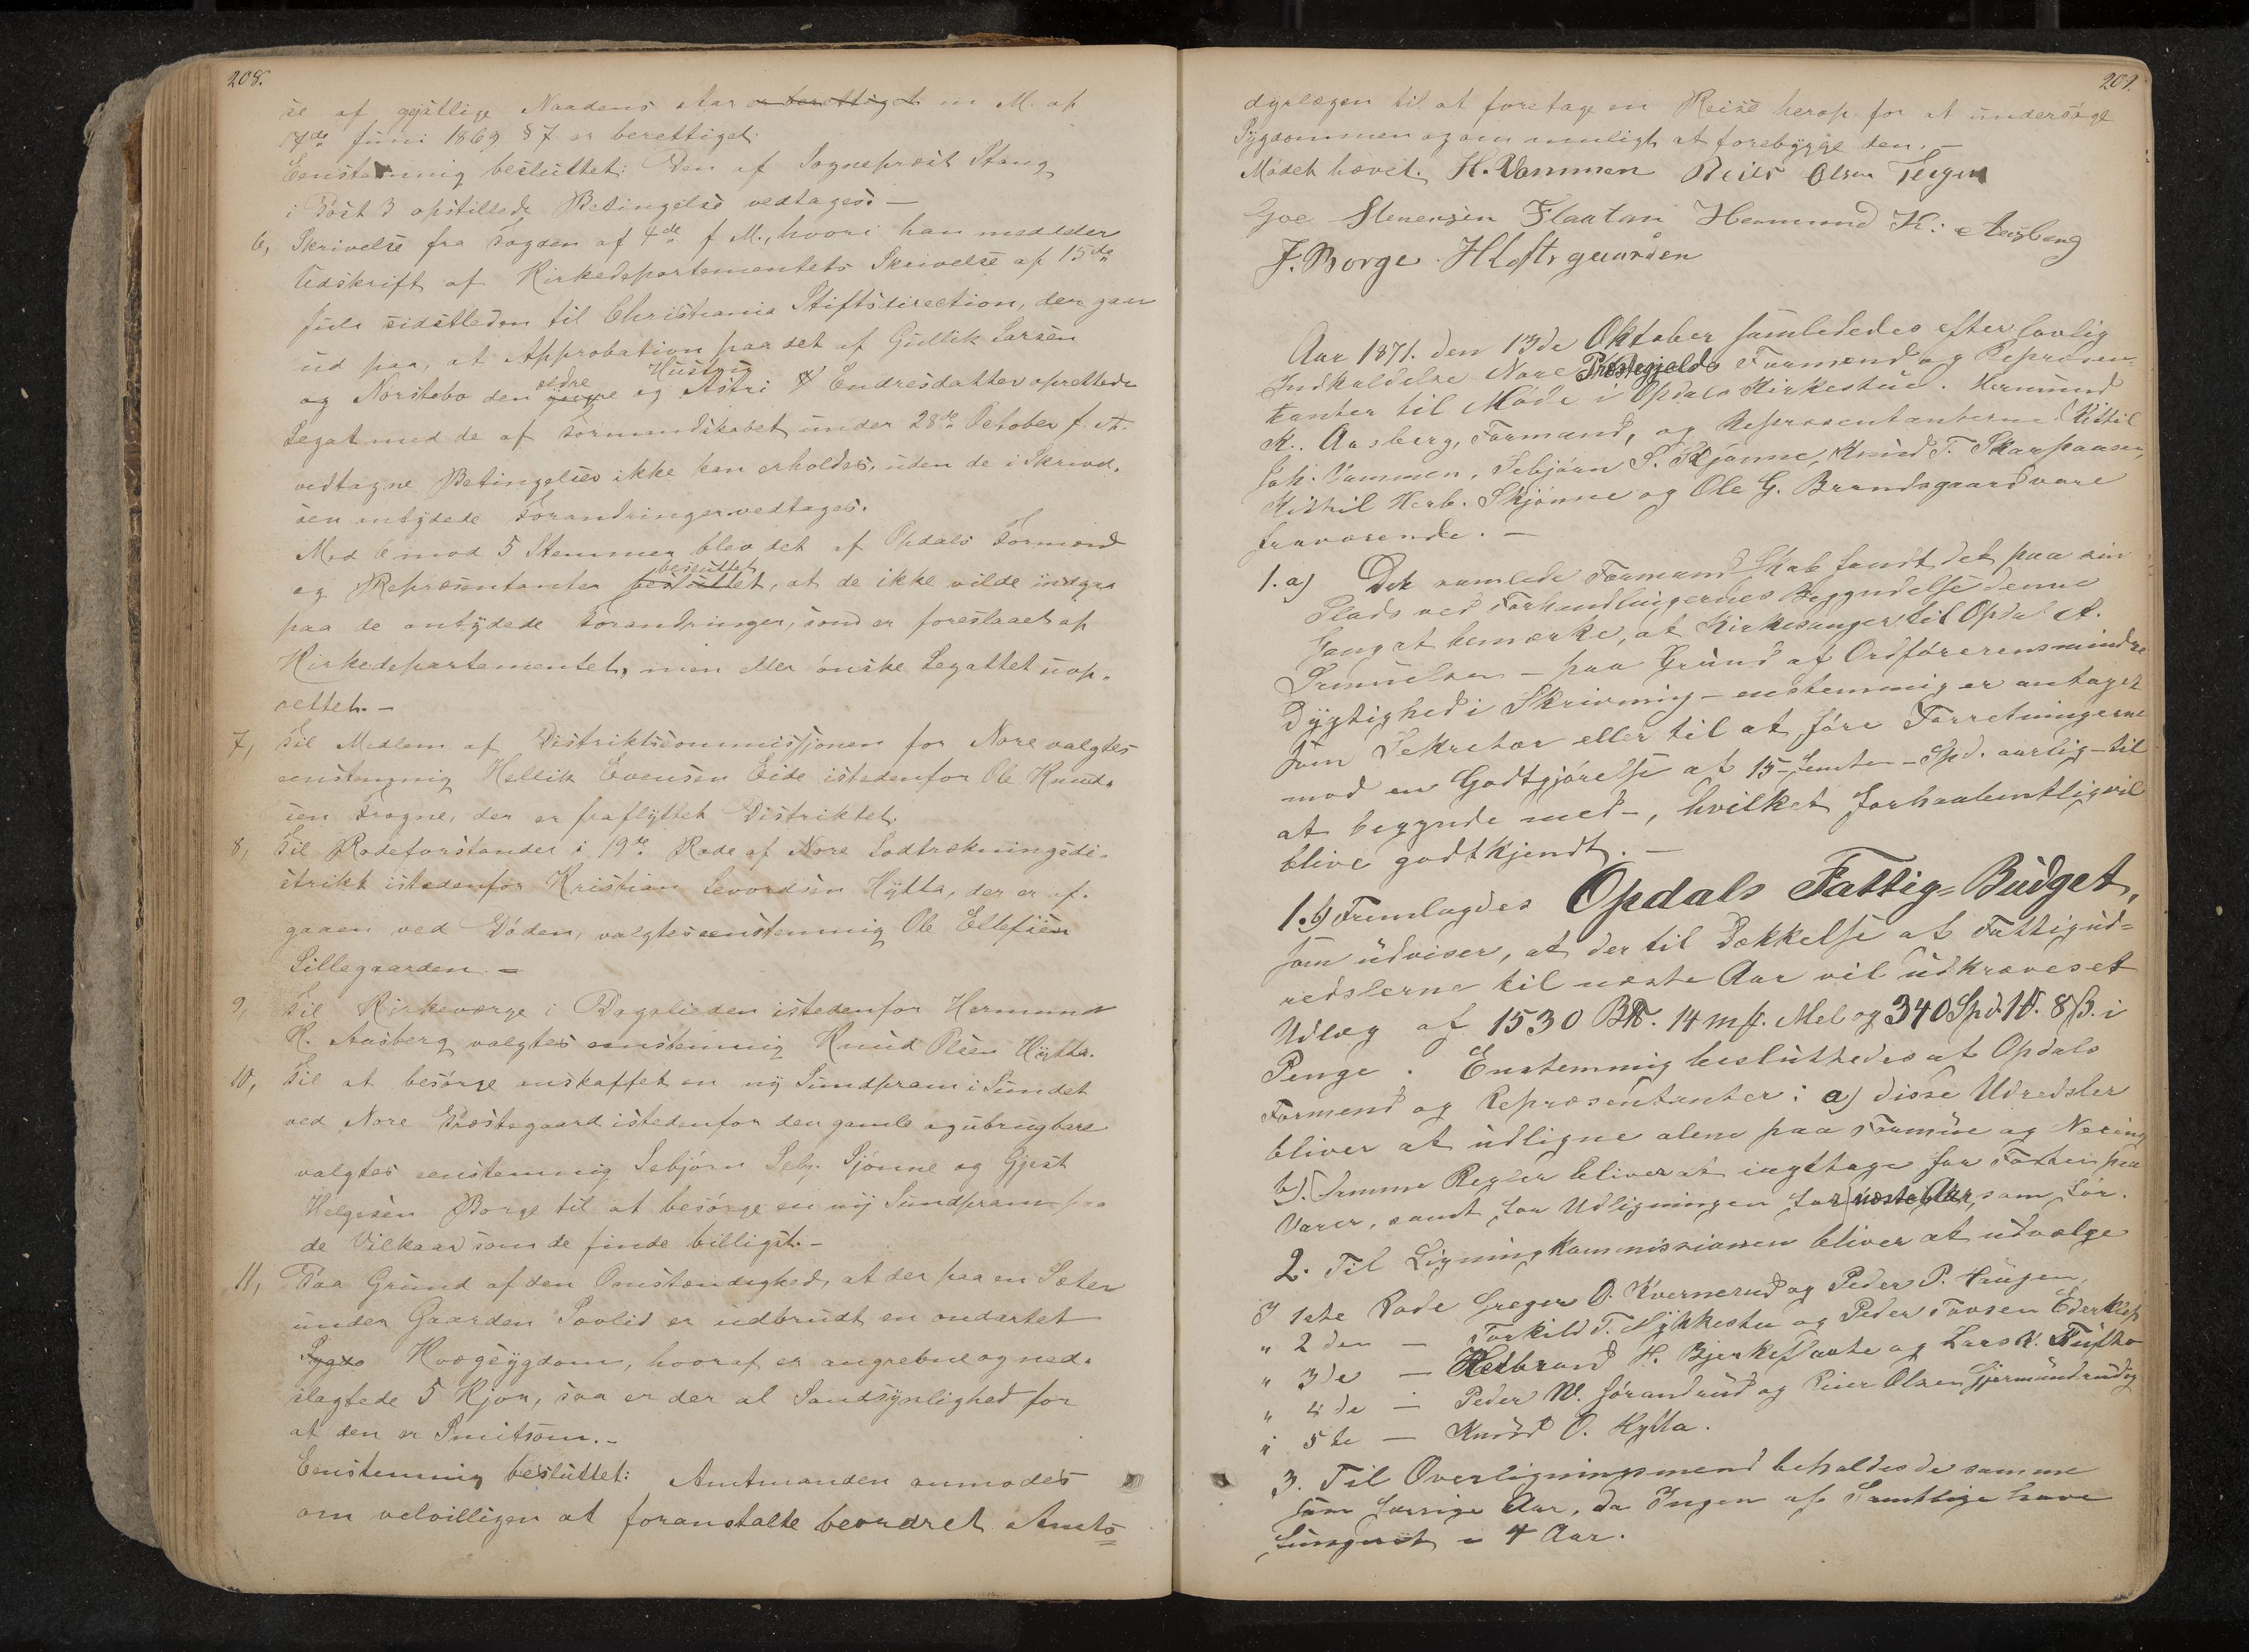 208.
se af gejstlige Naadens Aar er berettiget m M. af
14de Juni 1869 § 7 er berettiget.
Eenstemmig besluttet: Den af Sognepræst Stang
i Post 3 opstillede Betingelse vedtages. —
6, Skrivelse fra Fogden af 4de f M., hvori han meddeler
Udskrift af Kirkedepartementets Skrivelse af 15de
Juli sidstleden til Christiania Stiftsdirection, der gaar
ud paa, at Approbation paa det af Gullik Larsen
ældre Hustru
og Norstebo den yngre og Astri Endresdatter oprettede
Legat med de af Formandskabet under 28de October f. A.
vedtagne Betingelser ikke kan erholdes, uden de i Skrivel-
sen antydede Forandringer vedtages.
Med 6 mod 5 Stemmer blev det af Opdals Formænd
besluttet
og Repræsentanter besluttet, at de ikke vilde indgaa
paa de antydede Forandringer, som er foreslaaet af
Kirkedepartementet, men eller ønske Legattet uop-
rettet. —
7, Til Medlem af Distriktscommissjonen for Nore valgtes
eenstemmig Hellik Evensen Eide istedenfor Ole Knud-
sen Frogne, der er fraflyttet Distriktet.
8, Til Rodeforstander i 19de Rode af Nore Lodtrækningsdi-
strikt istedenfor Kristian Sevordsen Hytta, der er af-
gaaen ved Døden, valgtes eenstemmig Ole Ellefsen
Lillegaarden. —
9, Til Kirkeværge i Dagaliden istedenfor Hermund
K. Aasberg valgtes eenstemmig Knud Olsen Hytta.
10, Til at besørge anskaffet en ny Sundpram i Sundet
ved Nore Præstegaard istedenfor den gamle og ubrugbare
valgtes eenstemmig Sebjørn Seb. Sjønne og Gjest
Helgesen Borge til at besørge en ny Sundpram paa
de Vilkaar som de finde billigst. —
11, Paa Grund af den Omstændighed, at der paa en Sæter
under Gaarden Sovlid er udbrudt en ondartet
Sygdo Kvægsygdom, hvoraf er angrebne og ned-
slagtede 5 Kjør, saa er der al Sandsynlighed for
at den er Smitsom. —
Eenstemmig besluttet: Amtmanden anmodes
om velvilligen at foranstalte beordret Amts-
209.
dyrlægen til at foretage en Reise herop for at undersøge
Sygdommen og om muligt at forebygge den. —
Mødet hævet. H. Vammen Neils Olsen Teigen
Goe Stenersen Flaatan Hermund K. Aasberg
J. Borge. H Loftsgaarden
Aar 1871. den 13de Oktober samledes efter lovlig
Indkaldelse Nore Præstegjelds Formænd og Repræsen-
tanter til Møde i Opdals Kirkestue. Hermund
K. Aasberg, Formand, og Repræsentanterne Kittil
Joh. Vammen, Sebjørn S. Skjønne, Knud T. Skarpaasen,
Kittil Herb. Skjønne og Ole G. Brandsgaard vare
fraværende. —
1. a) Det samlede Formandskab fandt det paa sin
Plads ved Forhandlingernes Begyndelse denne
Gang at bemærke, at Kirkesanger til Opdal A.
Samuelsen — paa Grund af Ordførerens mindre
Dygtighed i Skrivning — enstemmig er antaget
som Sekretær eller til at føre Forretningerne
mod en Godtgjørelse af 15 – femten – Spd. aarlig — til
at begynde med —, hvilket forhaabentlig vil
blive godtkjendt. —
1. b) Fremlagdes Opdals Fattig-Budget,
som udviser, at der til Dækkelse af Fattigud-
redslerne til næste Aar vil udkræves et
Udlæg af 1530 B℔. 14 mk. Mel og 340 Spd. 1 Ort. 8 ß. i
Penge. Enstemmig besluttedes at Opdals
Formænd og Repræsentanter: a) disse Udredsler
bliver at udligne alene paa Formue og Næring
b). Samme Regler bliver at iagttage for Taxten paa
Varer, samt for Udligningen for næste Aar, som før.
2. Til Ligningskommissionen bliver at udvælge
I 1ste Rode Greger O. Kvernerud og Peder P. Haugen,
" 2den — Torkild T. Nykkestu og Peder Tovsen Ederklep
" 3de — Herbrand H. Bjerkeflaate og Lars K. Tufte
" 4de — Peder W. Jørandrud og Peier Olsen Gjermundrud og
" 5te — Knud O. Hytta.
3. Til Overligningsmænd beholdes de samme
som forrige Aar, da Ingen af Samtlige have
fungeret i 4 Aar.